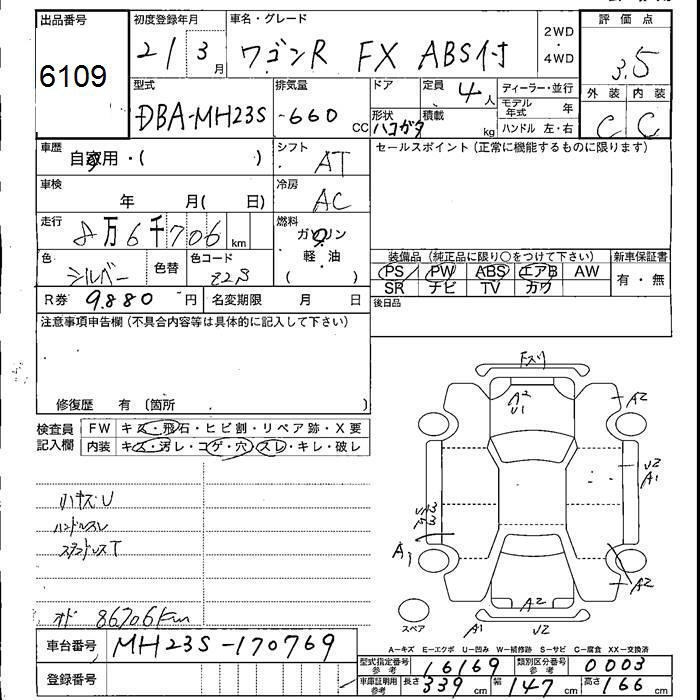 出品番号
6109
初度登録年月
21 3月
車名・グレード
ワゴンR FX ABS付
2WD
・
4WD
評価点
3.5
外装 内装
C C
型式
DBA-MH23S
排気量
-660 CC
ドア
形状
ハコガタ
定員
4人
積載
kg
ディーラー・並行
モデル年式 年
ハンドル 左・右
車歴
自家用・( )
シフト
AT
セールスポイント(正常に機能するものに限ります)
車検
年 月( 日)
冷房
AC
走行
8万6千706 km
燃料
ガソリン
軽油
( )
色
シルバー
色替
色コード
Z2S
装備品(純正品に限り○をつけて下さい)
PS PW ABS エアB AW
SR ナビ TV カワ
新車保証書
有・無
R券 9.880 円
名変期限 月 日
後日品
注意事項申告欄(不具合内容等は具体的に記入して下さい)
修復歴 有 〔箇所 〕
検査員記入欄
FW キズ・飛石・ヒビ割・リペア跡・X要
内装 キズ・汚レ・コゲ・穴・スレ・キレ・破レ
ハンドルスレ
オド 86706km
A2
U1
A2
U2
A1
A1
A2
A2
A1
U2
スペア
A-キズ E-エクボ U-凹み W-補修跡 S-サビ C-腐食 XX-交換済
車台番号 MH23S-170769
登録番号
型式指定番号 参考 16169
類別区分番号 参考 0003
車庫証明用 参考 長さ 339cm 幅 147cm 高さ 166cm